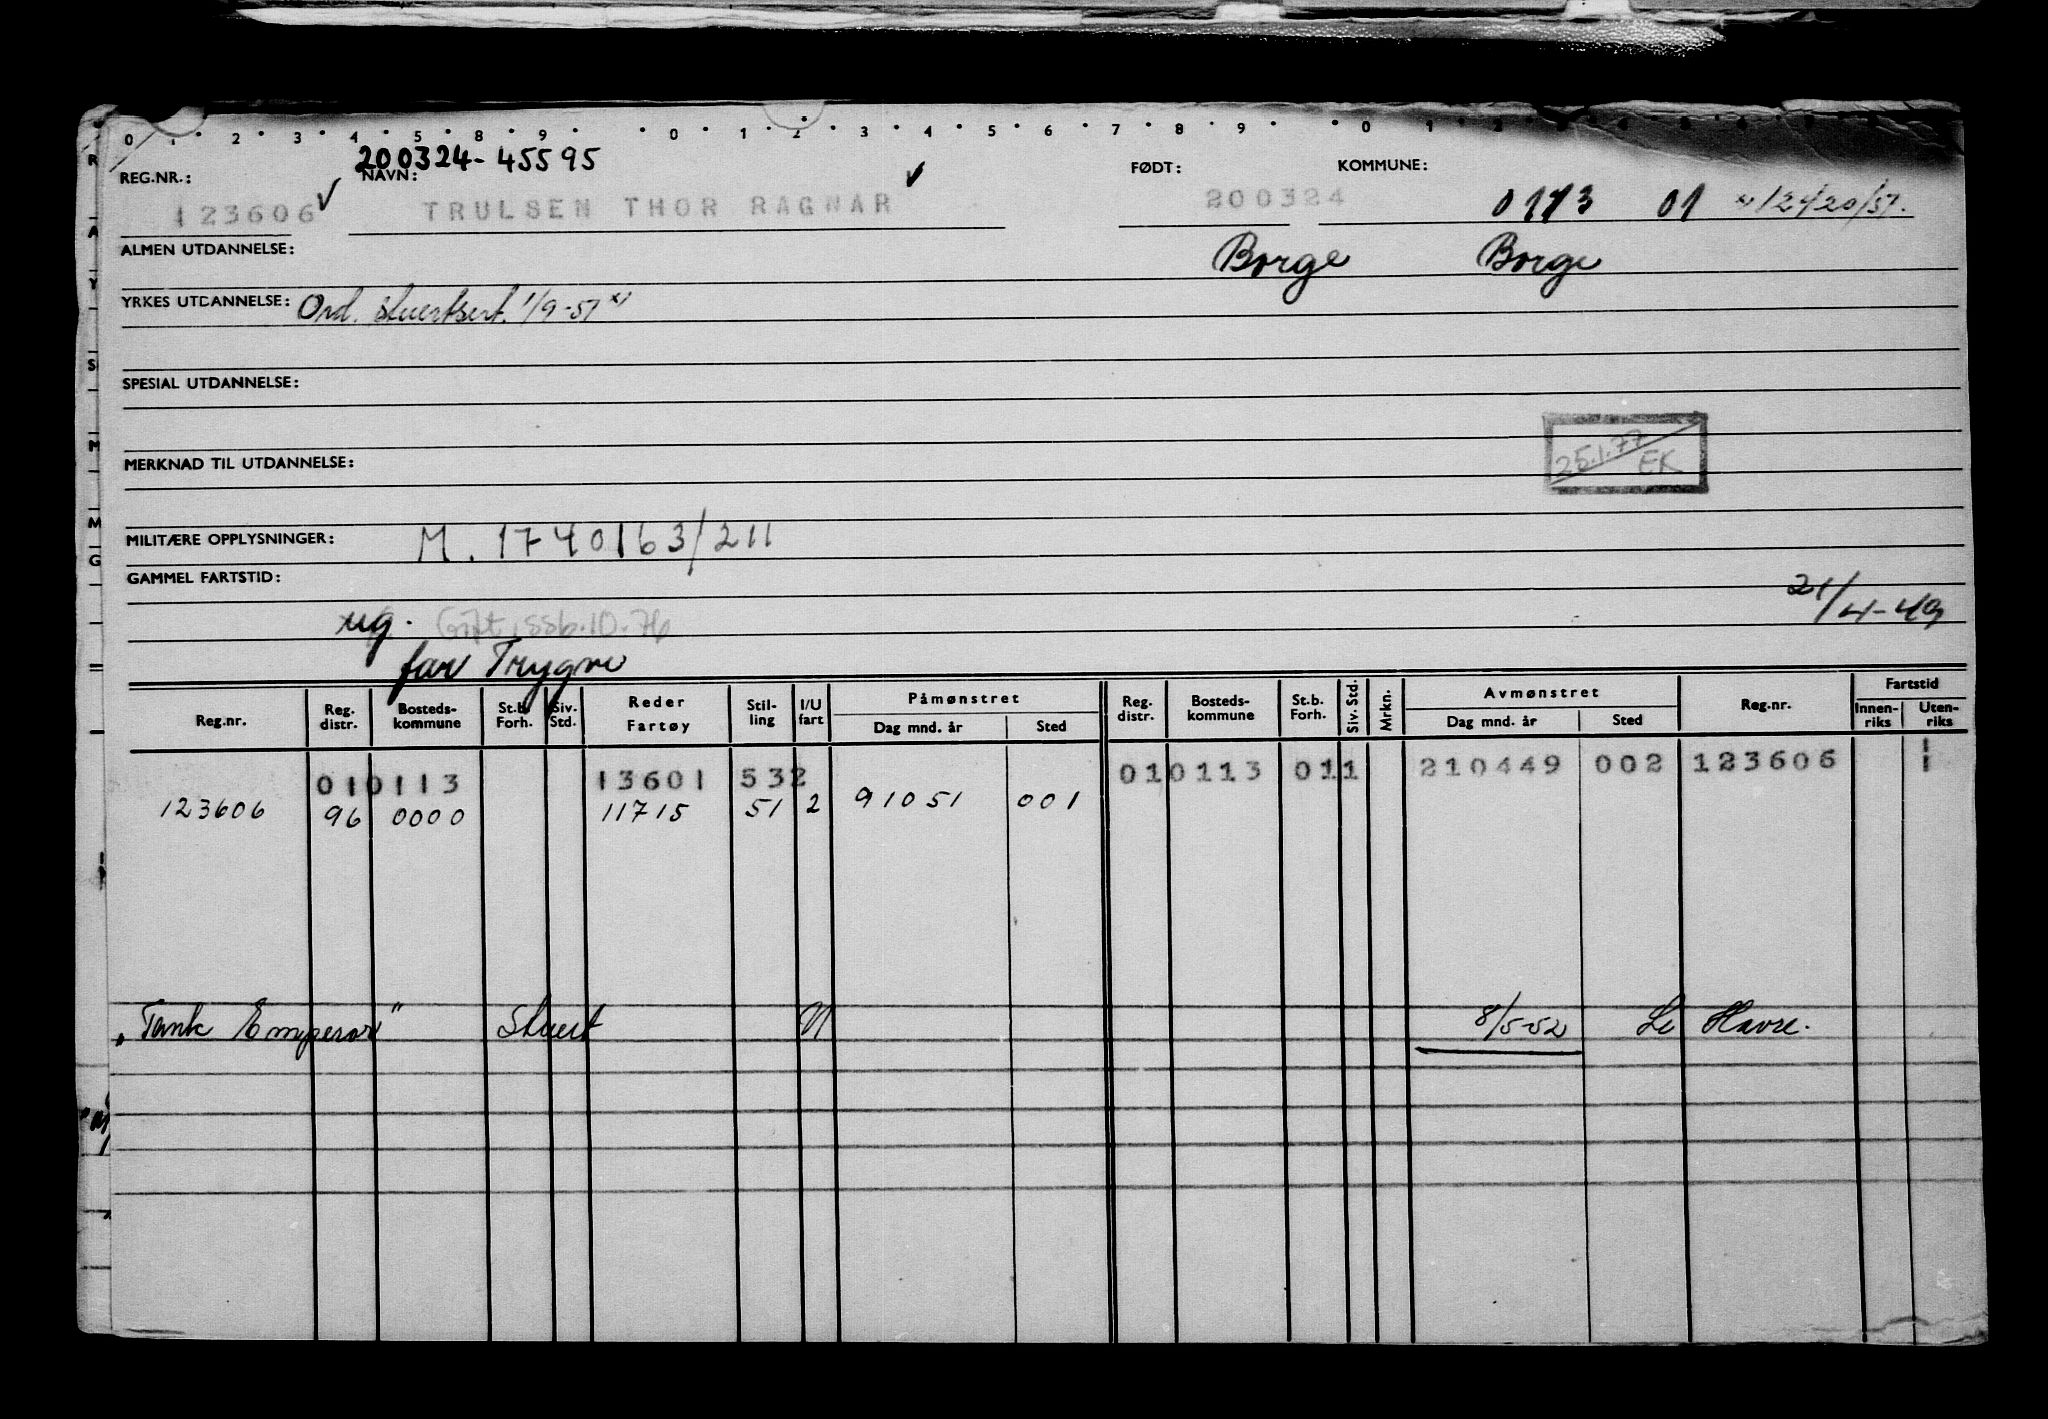 0 1 2 3 4 5 8 9 0 1 2 3 4 5 6 7 8 9 0 1 2
200324-45595
REG.NR.: NAVN: FØDT: KOMMUNE:
123606 TRULSEN THOR RAGNAR 200324 0113 01 x) 12420/51.
ALMEN UTDANNELSE: Borge Borge
YRKES UTDANNELSE: Ord. stuertsert. 1/9-51 x)
SPESIAL UTDANNELSE:
25.1.77 EK
MERKNAD TIL UTDANNELSE:
MILITÆRE OPPLYSNINGER: M. 1740163/211
GAMMEL FARTSTID:
21/4-49
ug. Gift, ssb.10.76
far Trygve
Reg.nr. Reg. distr. Bosteds-kommune St.b. Forh. Siv. Std. Reder Fartøy Stil-ling I/U fart Påmønstret Dag mnd. år Sted Reg. distr. Bosteds-kommune St.b. Forh. Siv. Std. Mrkn. Avmønstret Dag mnd. år Sted Reg.nr. Fartstid Innen-riks Uten-riks
010113 13601 532 010113 011 210449 002 123606 1 1
123606 96 0000 11715 51 2 91051 001
"Tank Emperor" Stuert U 8/5-52 Le Havre.
R A Y S M M G